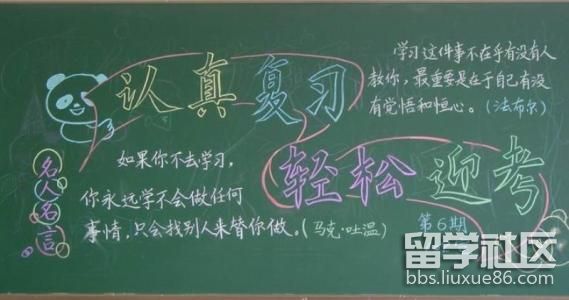 认真复习
学习这件事不在乎有没有人
教你，最重要是在于自己有没
有觉悟和恒心。（法布尔）
轻松迎考
名人名言
如果你不去学习，
你永远学不会做任何
事情，只会找别人来替你做。（马克·吐温）
第6期
留学社区
bbs.liuxue86.com